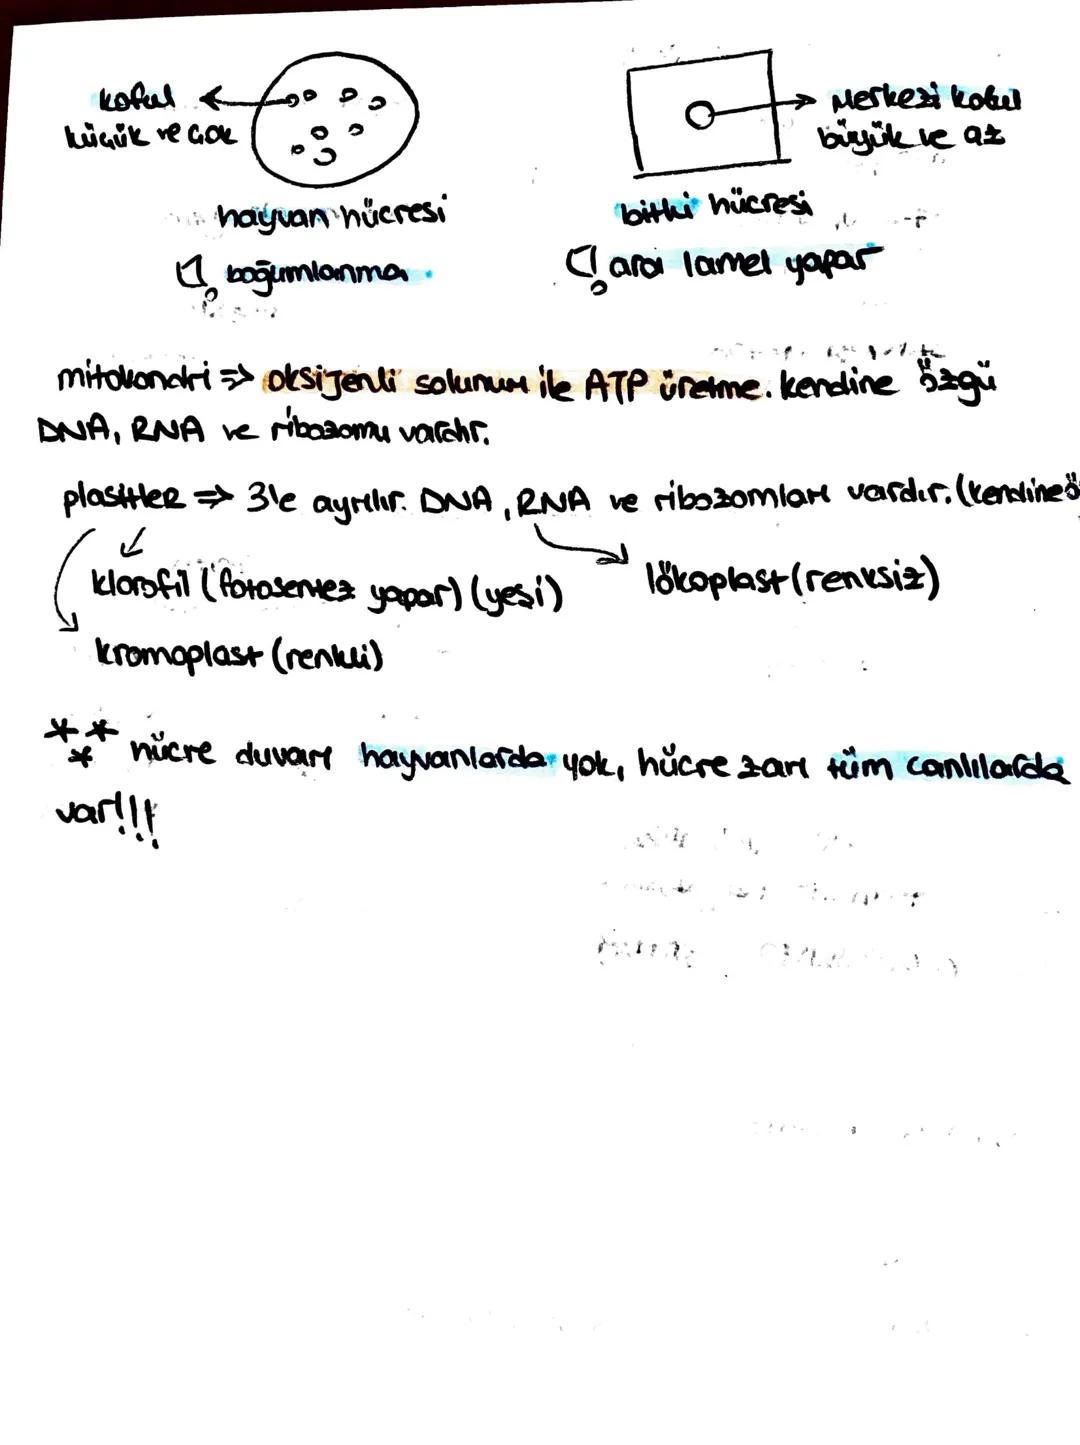 koful
küçük ve çok
Merkezi koful
büyük ve az
hayvan hücresi
bitki hücresi
boğumlanma
ara lamel yapar
mitokondri => oksijenli solunum ile ATP üretme. kendine özgü
DNA, RNA ve ribozomu vardır.
plastitler => 3'e ayrılır. DNA, RNA ve ribozomları vardır. (kendine ö
klorofil (fotosentez yapar) (yeşi)
lökoplast (renksiz)
kromoplast (renkli)
*** hücre duvarı hayvanlarda yok, hücre zarı tüm canlılarda
var!!!